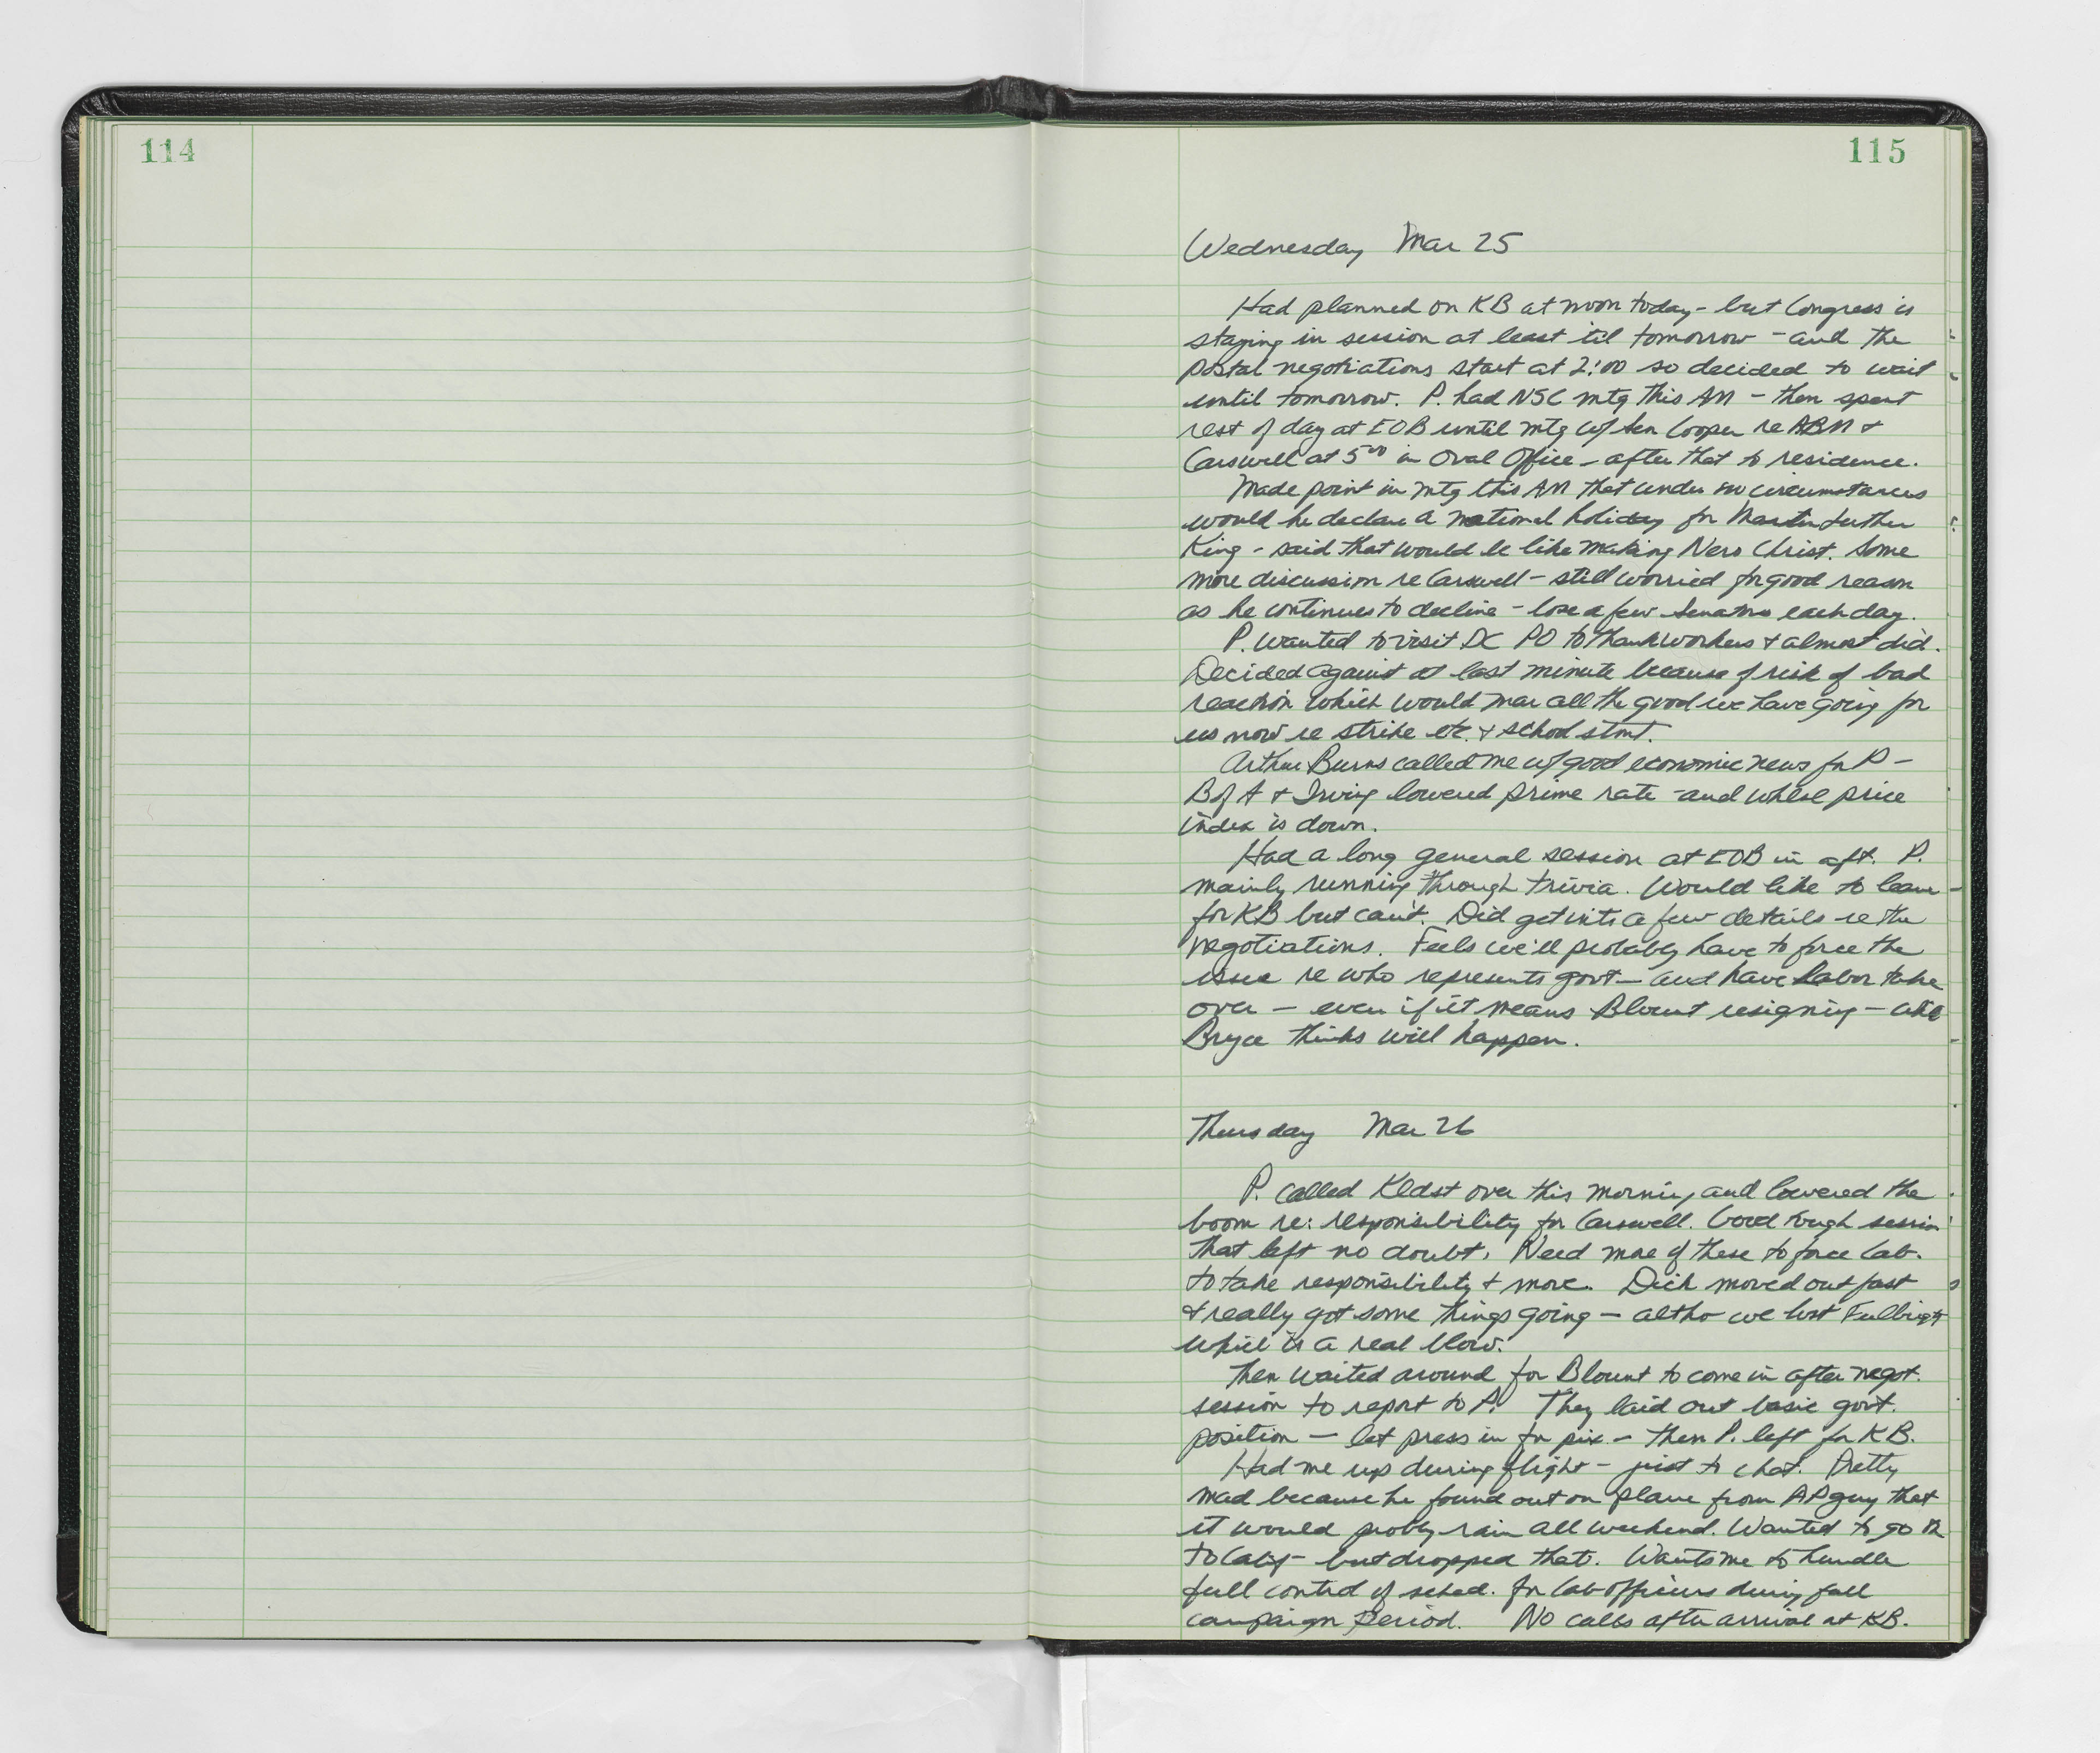 114
115
Wednesday Mar 25
Had planned on KB at noon today - but Congress is
staying in session at least 'til tomorrow - and the
postal negotiations start at 2:00 so decided to wait
until tomorrow. P. had NSC mtg this AM - then spent
rest of day at EOB until mtg w/ Sen Cooper re ABM +
Carswell at 5⁰⁰ in Oval Office - after that to residence.
Made point in mtg this AM that under no circumstances
would he declare a national holiday for Martin Luther
King - said that would be like making Nero Christ. Some
more discussion re Carswell - still worried for good reason
as he continues to decline - lose a few Senators each day.
P. wanted to visit DC PO to thank workers + almost did.
Decided against at last minute because of risk of bad
reaction which would mar all the good we have going for
us now re strike etc. + school stmt.
Arthur Burns called me w/ good economic news for P -
B of A + Irving lowered prime rate - and whlse price
index is down.
Had a long general session at EOB in aft. P.
mainly running through trivia. Would like to leave
for KB but can't. Did get into a few details re the
negotiations. Feels we'll probably have to force the
issue re who represents govt - and have Labor take
over - even if it means Blount resigning - which
Bryce thinks will happen.
Thursday Mar 26
P. called Kldst over this morning and lowered the
boom re: responsibility for Carswell. Good tough session
that left no doubt. Need more of these to force Cab.
to take responsibility + move. Dick moved out fast
+ really got some things going - altho we lost Fulbright
which is a real blow.
Then waited around for Blount to come in after negot.
session to report to P. They laid out basic govt.
position - let press in for pix - then P. left for KB.
Had me up during flight - just to chat. Pretty
mad because he found out on plane from AP guy that
it would probly rain all weekend. Wanted to go on
to Calif - but dropped that. Wants me to handle
full control of sched. for Cab officers during fall
campaign period. No calls after arrival at KB.